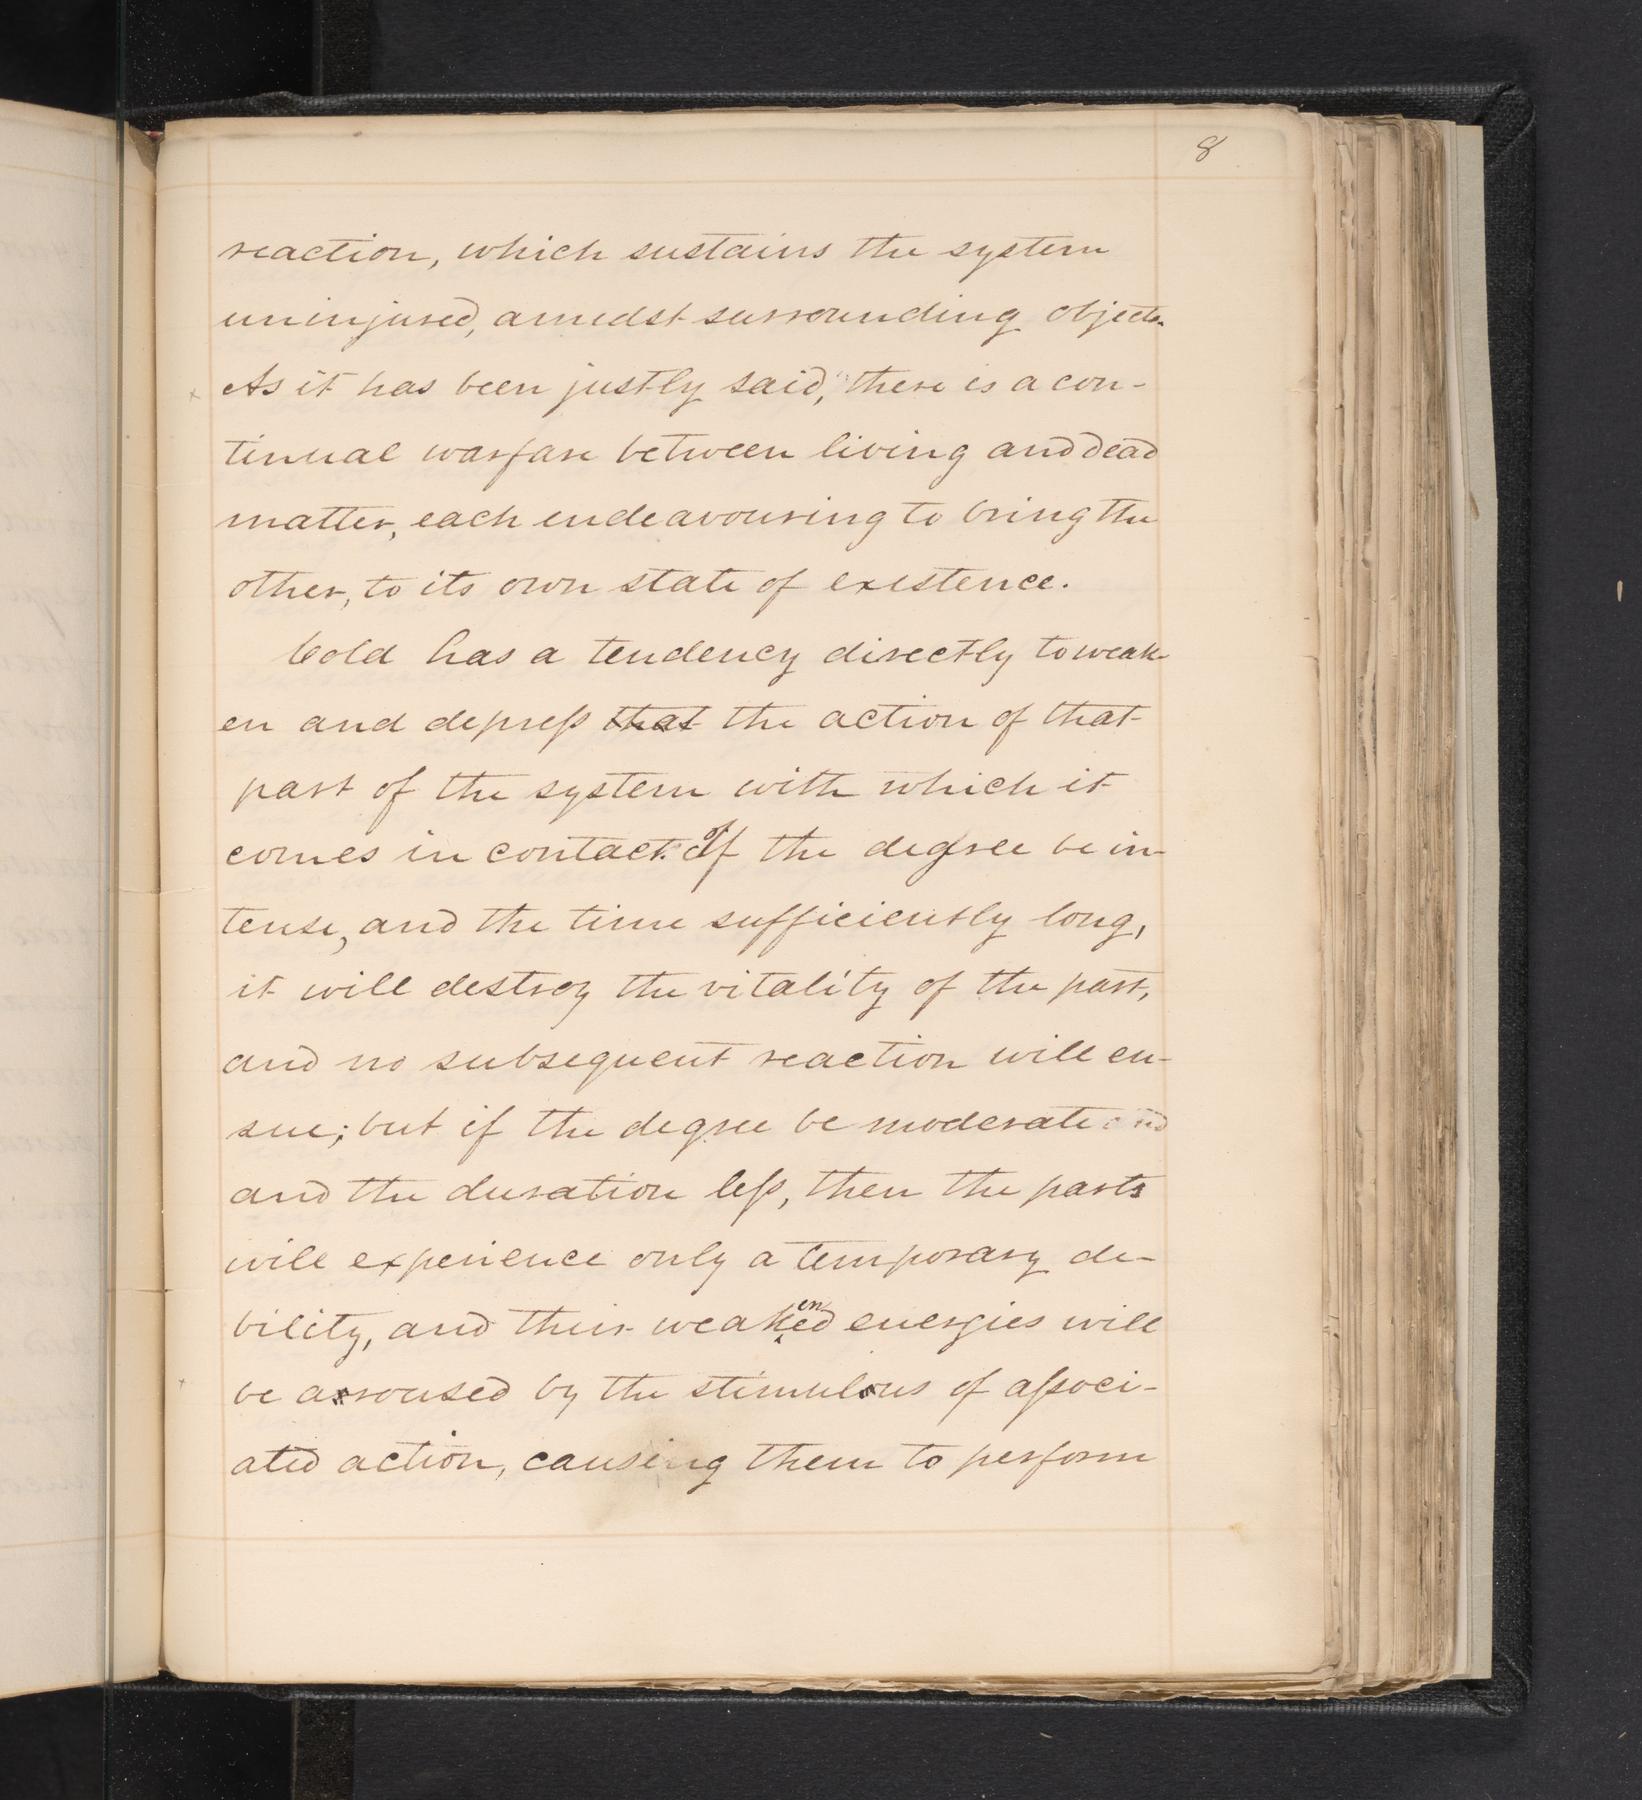 8
reaction, which sustains the system
uninjured, amidst surrounding objects.
As it has been justly said, "there is a con-
tinual warfare between living and dead
matter, each endeavouring to bring the
other, to its own state of existence.
Cold has a tendency directly to weak-
en and depress that the action of that
part of the system with which it
comes in contact. If the degree be in-
tense, and the time sufficiently long,
it will destroy the vitality of the part,
and no subsequent reaction will en-
sue; but if the degree be moderate and
and the duration less, then the parts
will experience only a temporary de-
bility, and their weakened energies will
be arroused by the stimulous of associ-
ated action, causing them to perform